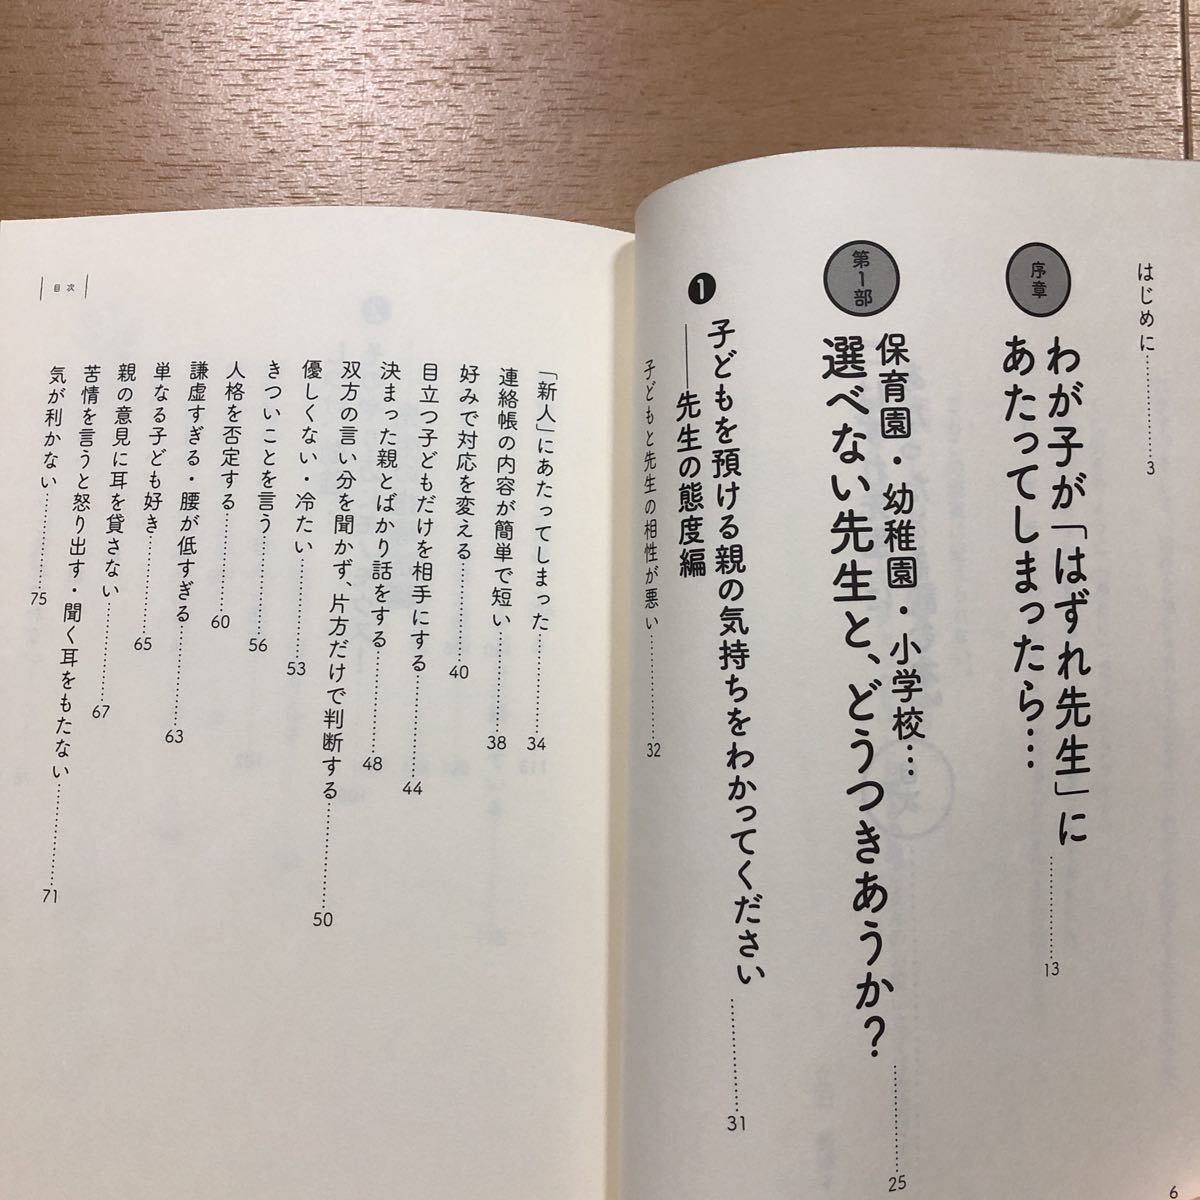 はじめに…………3
序章
わが子が「はずれ先生」に
あたってしまったら…………13
第1部
保育園・幼稚園・小学校…
選べない先生と、どうつきあうか？…………25
❶ 子どもを預ける親の気持ちをわかってください
——先生の態度編…………31
子どもと先生の相性が悪い…………32
6
目次
「新人」にあたってしまった…………34
連絡帳の内容が簡単で短い…………38
好みで対応を変える…………40
目立つ子どもだけを相手にする…………44
決まった親とばかり話をする…………48
双方の言い分を聞かず、片方だけで判断する…………50
優しくない・冷たい…………53
きついことを言う…………56
人格を否定する…………60
謙虚すぎる・腰が低すぎる…………63
単なる子ども好き…………65
親の意見に耳を貸さない…………67
苦情を言うと怒り出す・聞く耳をもたない…………71
気が利かない…………75